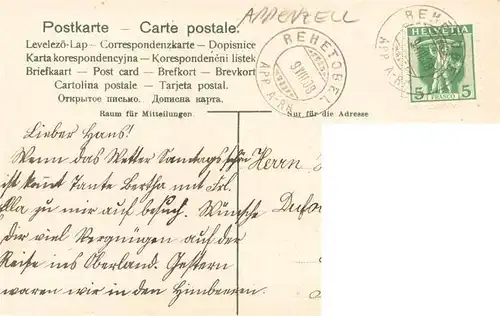 APPENZELL
Postkarte – Carte postale.
Levelező-Lap – Correspondenzkarte – Dopisnice
Karta korespondencyjna – Korespondenčni listek
Briefkaart – Post card – Brefkort – Brevkort
Cartolina postale – Tarjeta postal.
Открытое письмо. Дописна карта.
REHETOBEL
9.VIII.09
(APP. A.-RH.)
HELVETIA
5 FRANCO 5
Raum für Mitteilungen.
Nur für die Adresse
Lieber Hans!
Wenn das Wetter Samstags schön
ist kommt Tante Bertha mit Frl.
Ella zu mir auf besuch. Wünsche
Dir viel Vergnügen auf der
Reise ins Oberland. Gestern
waren wir in den Himbeeren.
Herrn
Dufou